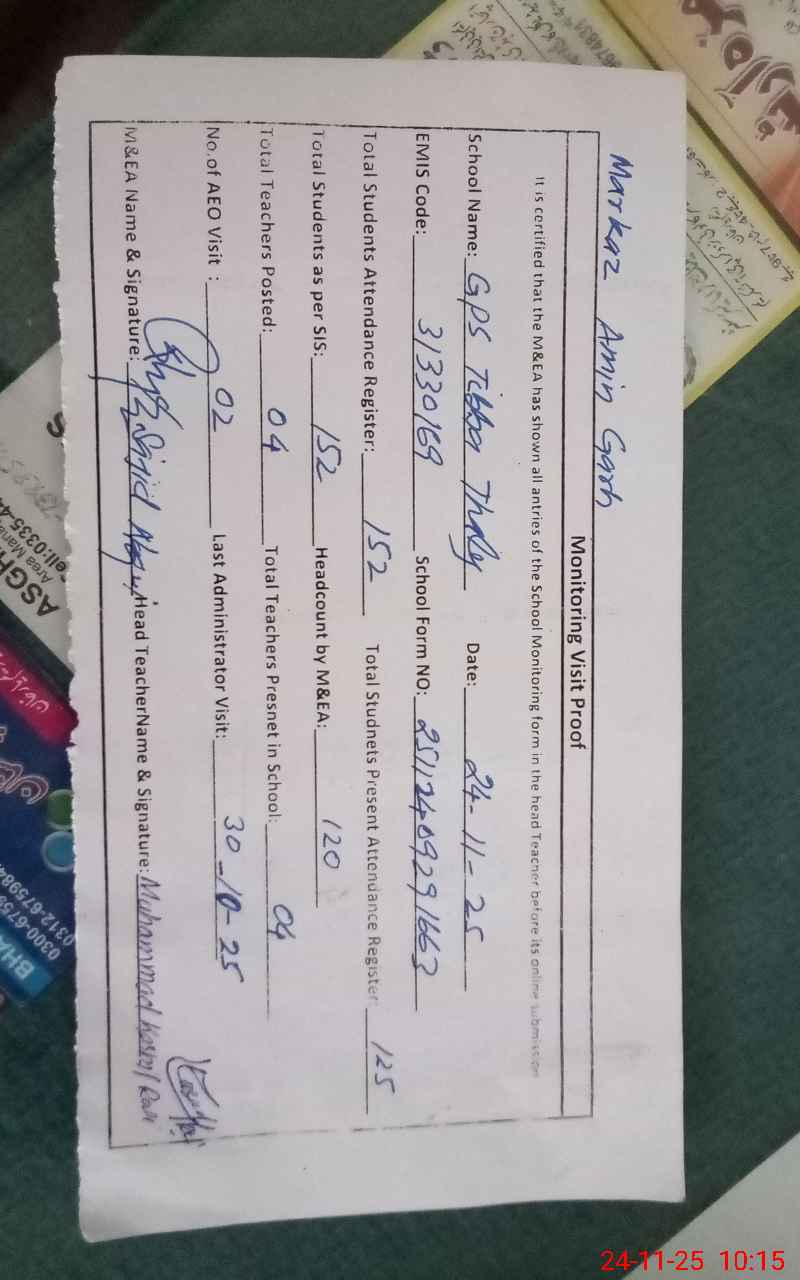 Markaz Amin Garh
Monitoring Visit Proof
It is certified that the M&EA has shown all antries of the School Monitoring form in the head Teacher before its online submission
School Name: GPS Tibba Thaly Date: 24-11-25
EMIS Code: 31330169 School Form NO: 25112409291663
Total Students Attendance Register: 152 Total Studnets Present Attendance Register: 125
Total Students as per SIS: 152 Headcount by M&EA: 120
Total Teachers Posted: 04 Total Teachers Presnet in School: 04
No.of AEO Visit : 02 Last Administrator Visit: 30-10-25
M&EA Name & Signature: Sajid Head TeacherName & Signature: Muhammad
ASGH
Area Mana
ell:0335-4
0312-675984
BHA
24-11-25 10:15